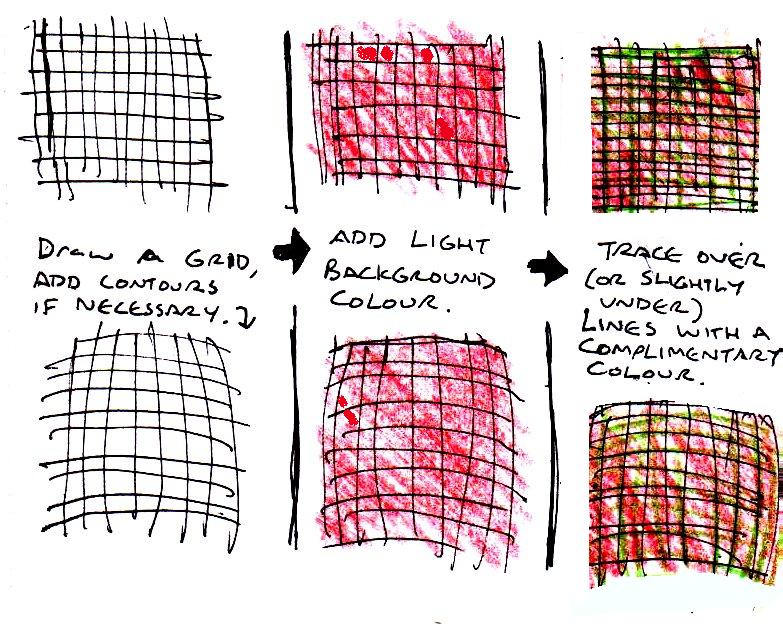 Draw a GRID,
ADD CONTOURS
IF NECESSARY.
ADD LIGHT
BACKGROUND
COLOUR.
TRACE OVER
(OR SLIGHTLY
UNDER)
LINES WITH A
COMPLIMENTARY
COLOUR.